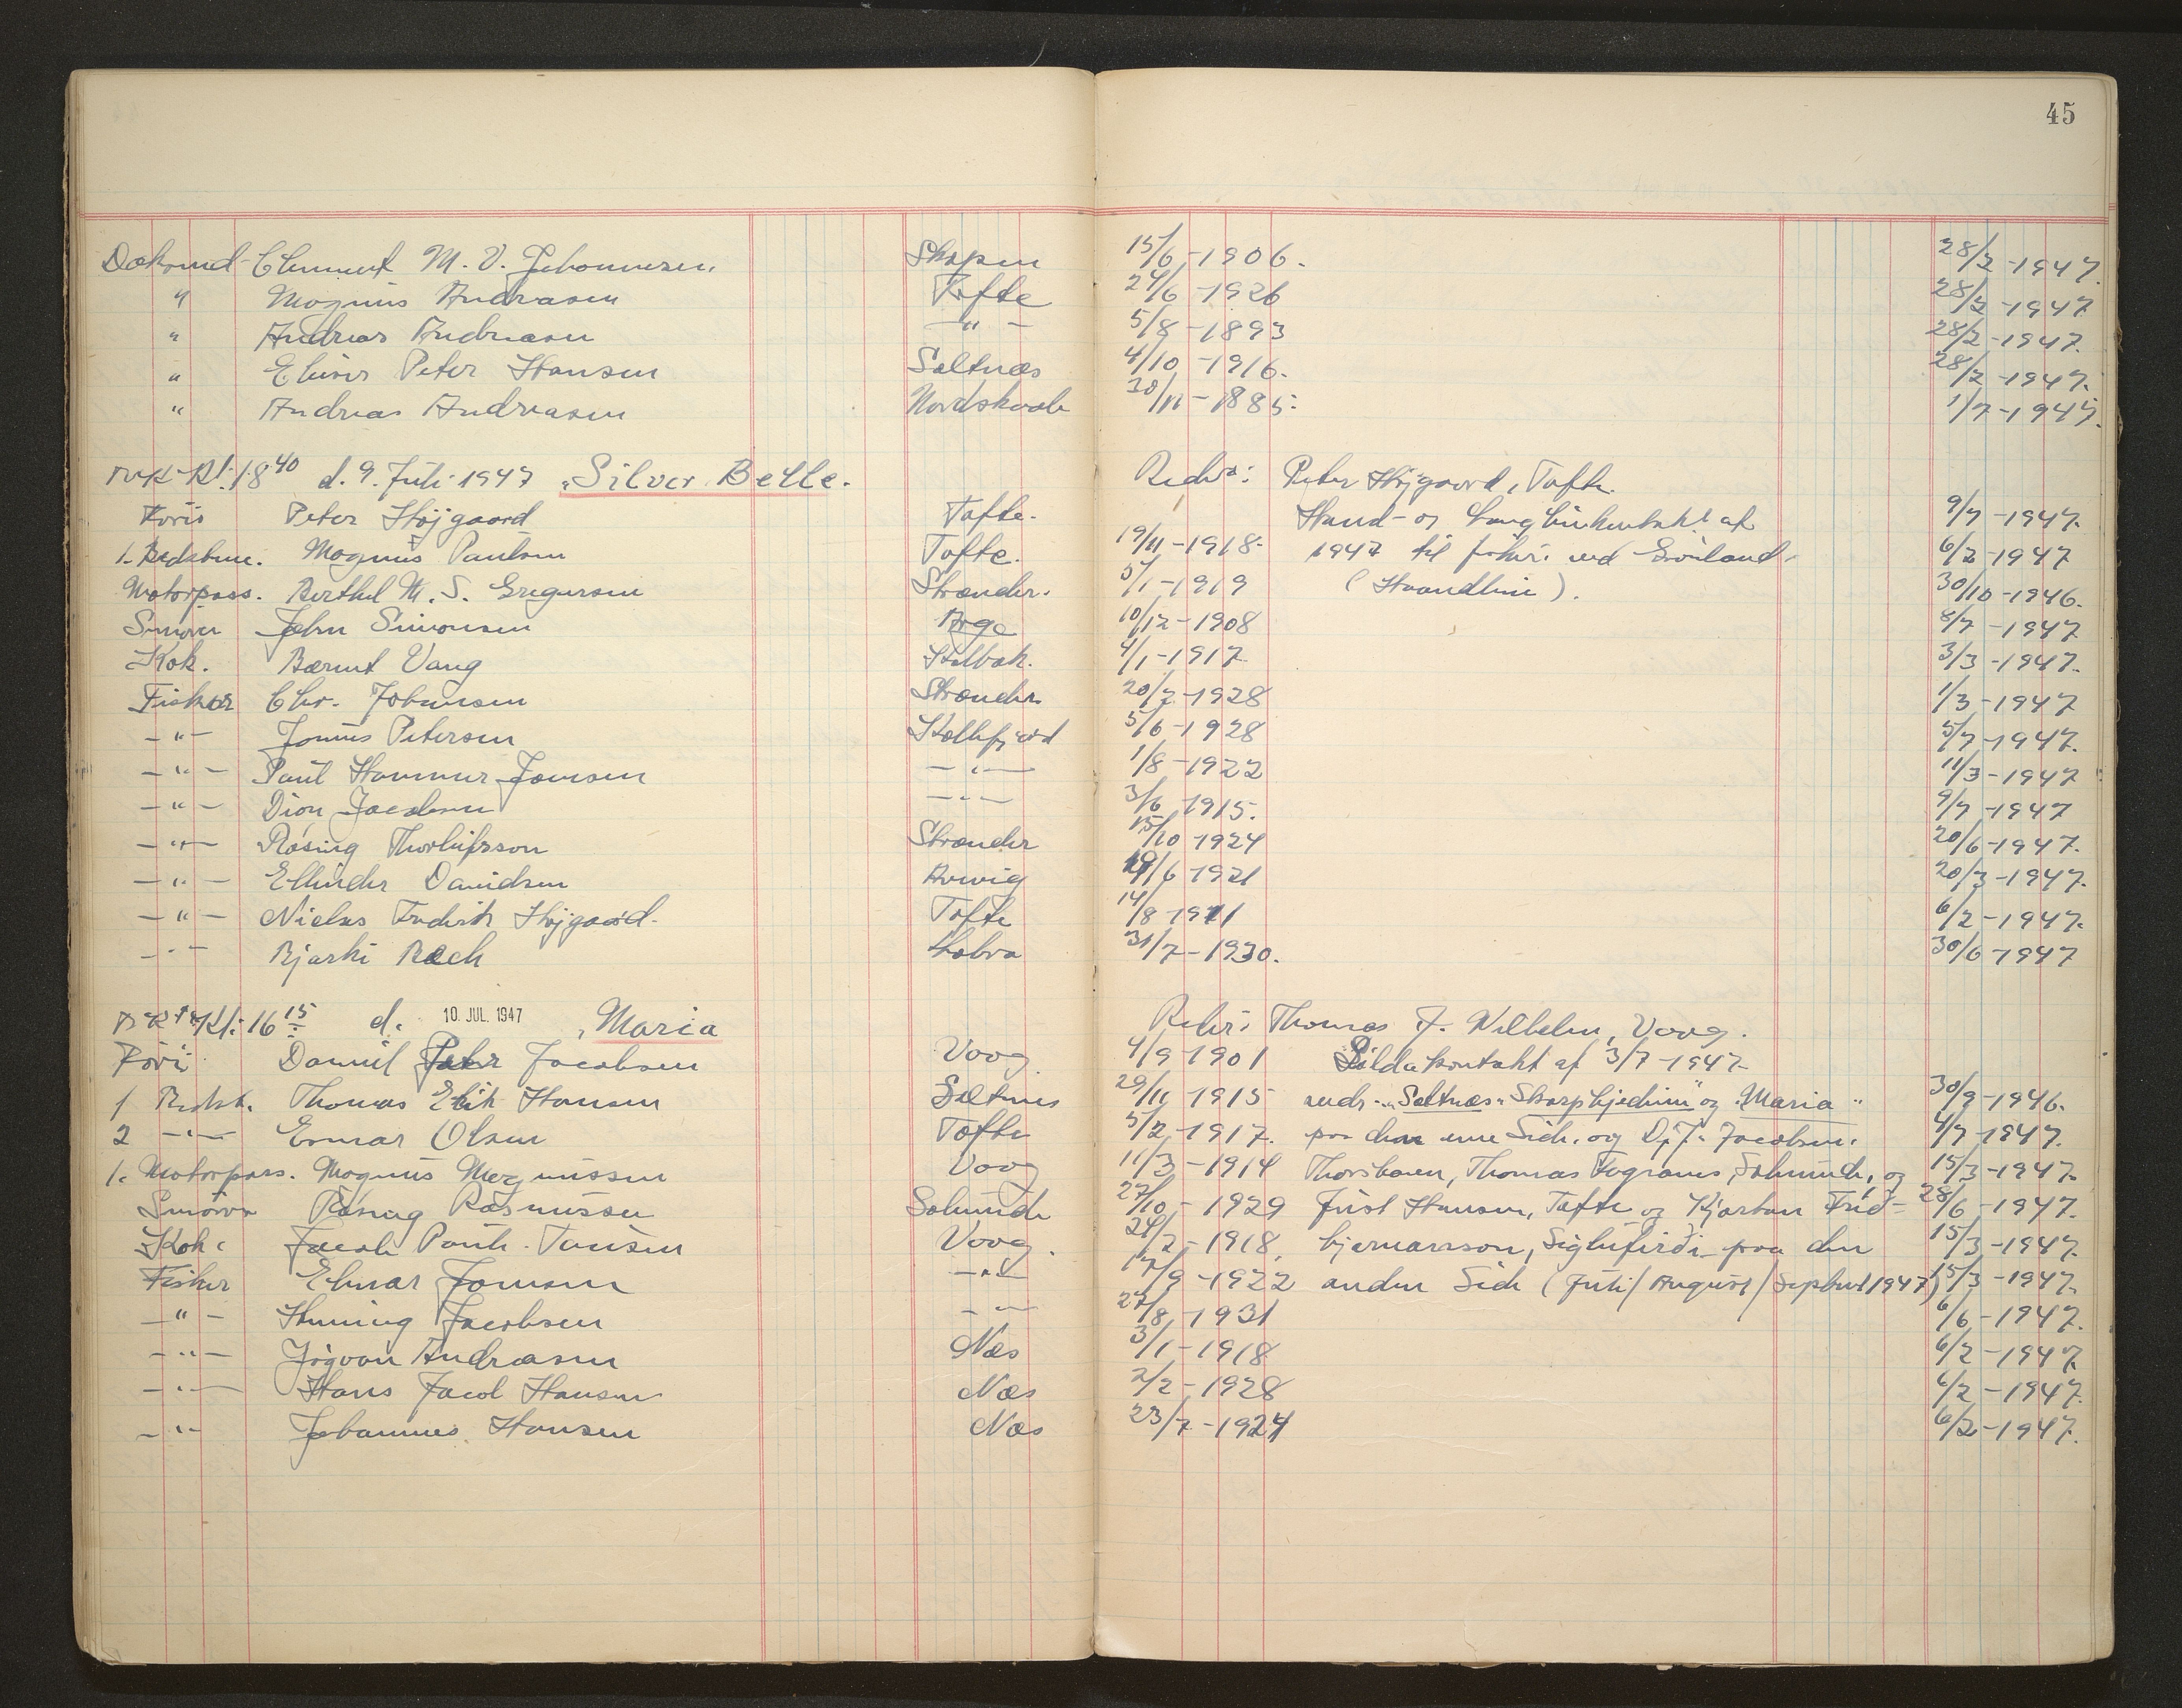 45
Dæksmd Clement M. V. Johannesen. Skopun 15/6-1906. 28/2-1947.
" Magnus Andreasen Tofte 24/6-1926 28/2-1947
" Andreas Andreasen -"- 5/8-1893 28/2-1947.
" Peter Hansen Saltnæs 4/10-1916. 28/2-1947.
" Andreas Andreasen Nordskaale 30/11-1885. 1/7-1947.
Kl. 18 40 d. 9. Juli 1947 "Silver Belle. Reder: Peter Højgaard, Tofte.
Peter Højgaard Tofte. Haand- og af 9/7-1947.
1. Bedstm. Magnus Paulsen Tofte. 19/11-1918. 1947 til fiskeri ved Grönland. 6/2-1947
Motorpass. Berthel M. S. Gregersen Strænder. 5/1-1919 (Haandline). 30/10-1946.
John Simonsen Æge 10/12-1908 8/7-1947
Kok. Bærint Vang Stelbæk. 4/1-1917 3/3-1947.
Fisker Chr. Johansen Strænder. 20/2-1928 1/3-1947
-"- Jonius Petersen Kollefjord 5/6-1928 5/7-1947.
-"- Paul Hammer Joensen -"- 1/8-1922 11/3-1947
-"- Dion Jacobsen -"- 3/6 1915. 9/7-1947
-"- Rósing Thorleifsson Strænder 15/10 1924 20/6-1947.
-"- Ellinder Davidsen Arwig /6 1921 20/3-1947.
-"- Niclas Frederik Højgaard. Tofte 14/8-1911 6/2-1947.
-"- Bjarki Bech 31/7-1930. 30/6-1947
Kl. 16 15 d. 10 JUL. 1947 "Maria Reder: Thomas F. Wilhelm, Vaag.
Daniel Peter Jacobsen Vaag 4/9-1901 Sildekontrakt af 3/7-1947
1 Bedst. Thomas Erik Hansen Saltnes 29/11 1915 "Saltnæs" Skarphjedinn" og "Maria" 30/9-1946.
2 -"- Ermar Olsen Tofte 5/2-1917. paa den ene Side, og D. J. Jacobsen, 4/7-1947.
1. Motorpass. Magnus Magnussen Vaag 11/3-1914 Thorshavn, Thomas Fugranes, og 15/3-1947.
Rósing Rasmussen Solmunde 27/10-1929 Just Hansen, Tofte og Kjartan Frið= 28/6-1947.
Kok. Jacob Paule Tausen Vaag. 24/2-1918. bjarnarsson, Siglufirði paa den 15/3-1947.
Fisker Elmar Joensen -"- /9-1922 anden Side (Juli/August/Septembr 1947) 15/3-1947.
-"- Henning Jacobsen -"- 27/8 1931 6/6-1947.
-"- Jógvan Andreasen Næs 3/1-1918 6/2-1947.
-"- Hans Jacob Hansen Næs 2/2-1928 6/2-1947.
-"- Johannes Hansen Næs 23/7-1924 6/2-1947.